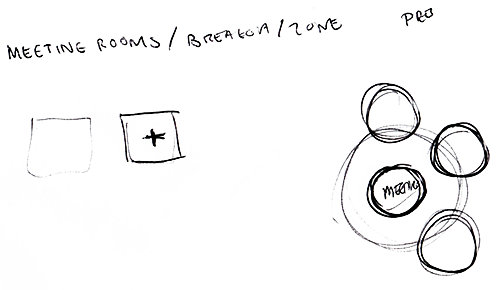 MEETING ROOMS / BREAKOUT / ZONE
MEETING